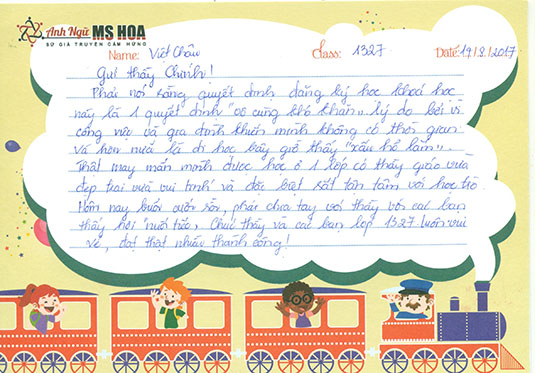 Anh Ngữ MS HOA
SỨ GIẢ TRUYỀN CẢM HỨNG
Name: Việt Châu Class: 1327 Date: 19/8/2017
Gửi thầy Chính!
Phải nói rằng quyết định đăng ký học khoá học
này là 1 quyết định "vô cùng khó khăn". Lý do bởi vì
công việc và gia đình khiến mình không có thời gian
và hơn nữa là đi học bây giờ thấy "xấu hổ lắm".
Thật may mắn mình được học ở 1 lớp có thầy giáo vừa
đẹp trai vừa vui tính và đặc biệt rất tận tâm với học trò.
Hôm nay buổi cuối rồi, phải chia tay với thầy với các bạn
thấy hơi nuối tiếc, Chúc thầy và các bạn lớp 1327 luôn vui
vẻ, đạt thật nhiều thành công!